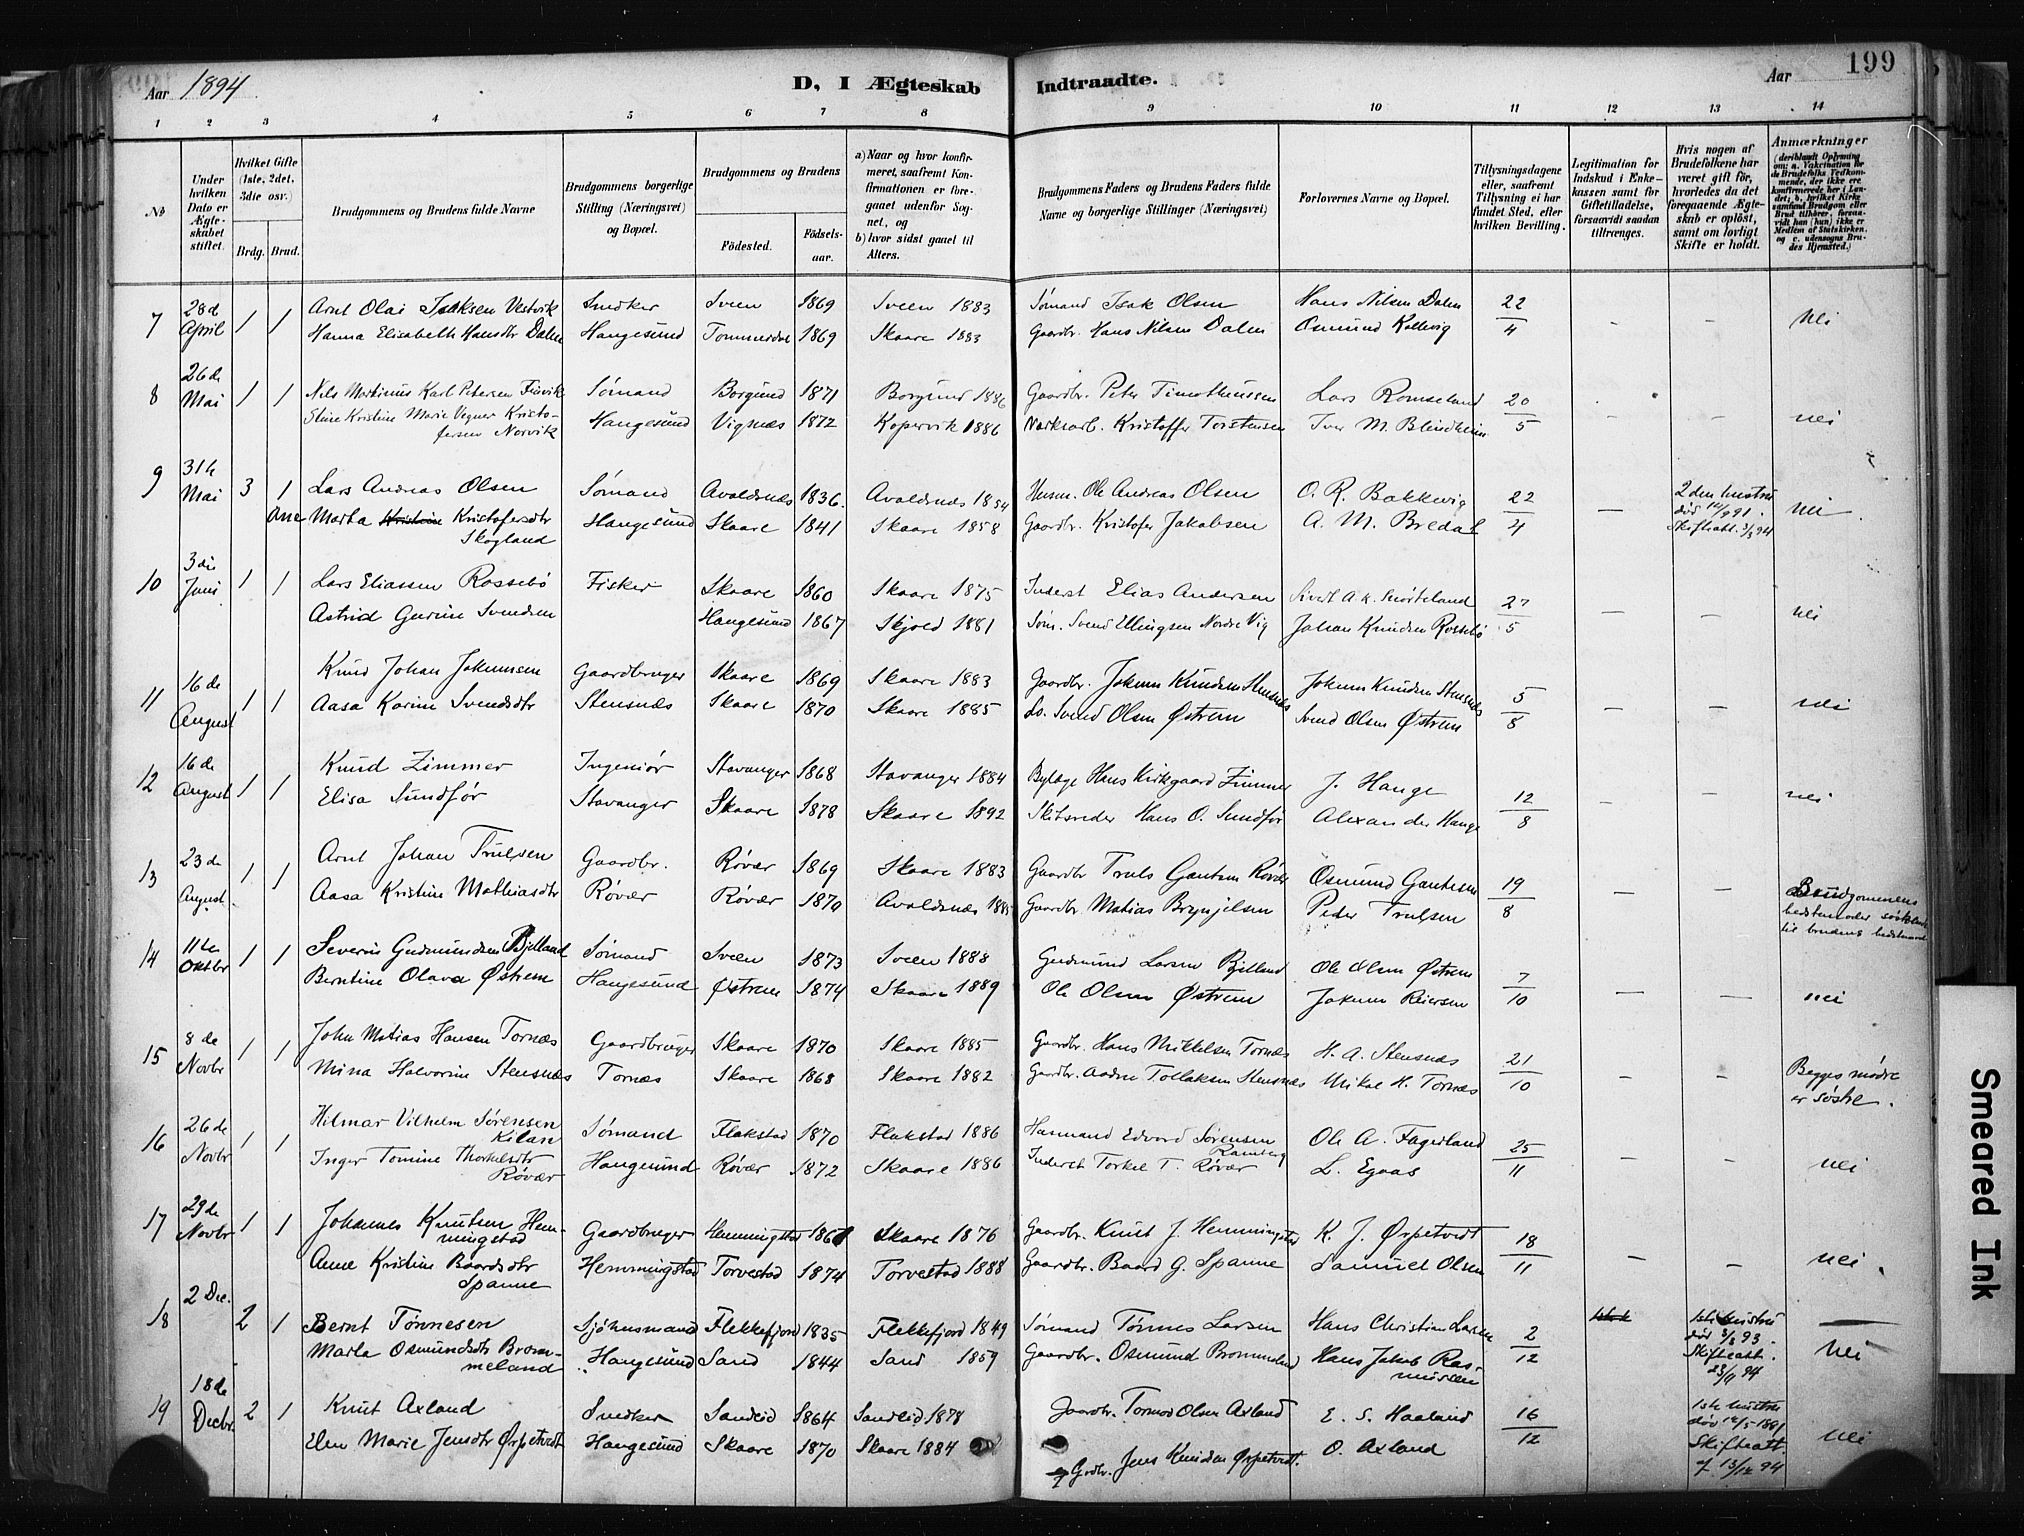 Aar 1894
D, I Ægteskab Indtraadte.
Aar 199
1 2 3 4 5 6 7 8 9 10 11 12 13 14
No
Under hvilken Dato er Ægteskabet stiftet.
Hvilket Gifte (1ste, 2det, 3die osv.)
Brdg. Brud.
Brudgommens og Brudens fulde Navne
Brudgommens borgerlige Stilling (Næringsvei) og Bopæl.
Brudgommens og Brudens
Födested.
Födselsaar.
a) Naar og hvor konfirmeret, saafremt Konfirmationen er foregaaet udenfor Sognet, og
b) hvor sidst gaaet til Alters.
Brudgommens Faders og Brudens Faders fulde Navne og borgerlige Stillinger (Næringsvei)
Forlovernes Navne og Bopæl.
Tillysningsdagene eller, saafremt Tillysning ei har fundet Sted, efter hvilken Bevilling.
Legitimation for Indskud i Enkekassen samt for Giftetilladelse, forsaavidt saadan tiltrænges.
Hvis nogen af Brudefolkene har været gift för, hvorledes da det foregaaende Ægteskab er oplöst, samt om lovligt Skifte er holdt.
Anmærkninger
(deriblandt Oplysning om: a. Vakcination for de Brudefolks Vedkommende, der ikke ere konfirmerede her i Landet; b. hvilket Kirkesamfund Brudgom eller Brud tilhörer, forsaavidt han (hun) ikke er Medlem af Statskirken, og c. udensogns Brudes Hjemsted.)
7 28d April 1 1 Arnt Olai Isaksen Vestvik Snedker Sveen 1869 Sveen 1883 Sømand Isak Olsen Hans Nilsen Dalen 22/4 - - Nei
Hanna Elisabeth Hansdtr Dalen Haugesund Tommerdal 1869 Skaare 1883 Gaardbr. Hans Nilsen Dalen Osmund Kallevig
8 26de Mai 1 1 Nils Martinus Karl Petersen Sømand Borgund 1871 Borgund 1886 Gaardbr. Peter Timotheussen Lars Romseland 20/5 - - nei
Stine Kristine Marie Vegner Kristofersen Norvik Haugesund Vigsnæs 1872 Kopervik 1886 Kristoffer Torstensen Iver M. Blindheim
9 31te Mai 3 1 Lars Andreas Olsen Sømand Avaldsnæs 1836. Avaldsnæs 1854 Husm. Ole Andreas Olsen O. R. Bakkevig 22/4 - 2den hustru död 12/9 91. Skifteatt. 3/3 94 nei.
Ane Marta Kristine Kristofersdtr Skogland Haugesund Skaare 1841 Skaare 1858 Gaardbr. Kristofer Jakobsen A. M. Bredal
10 3die Juni 1 1 Lars Eliassen Rossebö Fisker Skaare 1860 Skaare 1875 Inderst Elias Andersen Sivert A. K. 27/5 - - Nei
Astrid Gurine Svendsen Haugesund 1867 Skjold 1881 Søm. Svend Ellingsen Nordre Vig Johan Knudsen Rossebö
11 16de August 1 1 Knud Johan Jokumsen Gaardbruger Skaare 1869 Skaare 1883 Gaardbr. Jokum Knudsen Stensnæs Jokum Knudsen Stensnæs 5/8 - - nei
Aasa Karine Svendsdtr Stensnæs Skaare 1870 Skaare 1885 Do. Svend Olsen Østrem Svend Olsen Østrem
12 16de August 1 1 Knud Zimmer Ingeniör Stavanger 1868 Stavanger 1884 Hans Kirkgaard Zimmer J. Hauge 12/8 - - nei
Elisa Sundför Stavanger Skaare 1878 Skaare 1892 Skibsreder Hans O. Sundför Alexander Hauge
13 23de August 1 1 Arnt Johan Trulsen Gaardbr. Røvær 1869 Skaare 1883 Gaardbr. Truls Gautsen Røvær Osmund Gautesen 19/8 - - Brudgommens bedstemoder til brudens
Aasa Kristine Mathiasdtr Røvær Røvær 1870 Avaldsnæs 1885 Gaardbr. Matias Brynjelsen Peder Trulsen
14 11te Oktbr 1 1 Severin Gudmundsen Bjelland Sømand Sveen 1873 Sveen 1888 Gudmund Larsen Bjelland Ole Olsen Østrem 7/10 - - nei
Berntine Olava Østrem Haugesund Østrem 1874 Skaare 1889 Ole Olsen Østrem Jokum Reiersen
15 8de Novbr 1 1 John Matias Hansen Tornæs Gaardbruger Skaare 1870 Skaare 1885 Gaardbr. Hans Mikkelsen Tornæs H. A. Stensnæs 21/10 - - Begges mødre er søstre.
Mina Halvorine Stensnæs Tornæs Skaare 1868 Skaare 1882 Gaardbr. Aadne Tollaksen Stensnæs Mikal H. Tornæs
16 26de Novbr 1 1 Hilmar Vilhelm Sørensen Kilan Sømand Flakstad 1870 Flakstad 1886 Edvard Sørensen Ramberg Ole A. Fagerland 25/11 - - nei
Inger Tomine Thorkelsdtr Røvær Haugesund Røvær 1872 Skaare 1886 Inderst Torkel T. Røvær L. Egaas
17 29de Novbr 1 1 Johannes Knutsen Hemmingstad Gaardbruger Hemmingstad 1861 Skaare 1876 Gaardbr. Knut J. Hemmingstad K. J. Ørpetvedt 18/11 - - nei.
Anne Kristine Baardsdtr Spanne Hemmingstad Torvestad 1874 Torvestad 1888 Gaardbr. Baard G. Spanne Samuel Olsen
18 2 Dec. 2 1 Bernt Tønnesen Sjöhusmand Flekkefjord 1835 Flekkefjord 1849 Sømand Tønnes Larsen Hans Christian Larsen 2/12 1ste hustru död 3/8 93. Skifteatt. 23/4 94 Nei
Marta Osmundsdtr Brommeland Haugesund Sand 1844 Sand 1859 Gaardbr. Osmund Brommeland Hans Jakob Rasmussen
19 18de Decbr. 2 1 Knut Axland Snedker Sandeid 1864 Sandeid 1878 Gaardbr. Tormod Olsen Axland E. S. Haaland 16/12 1ste hustru död 14/5 1891 Skifteatt. af 13/12 94 Nei
Elen Marie Jensdtr Ørpetvedt Haugesund Skaare 1870 Skaare 1884 Grdbr. Jens Knudsen Ørpetvedt. O. Axland
Smeared Ink